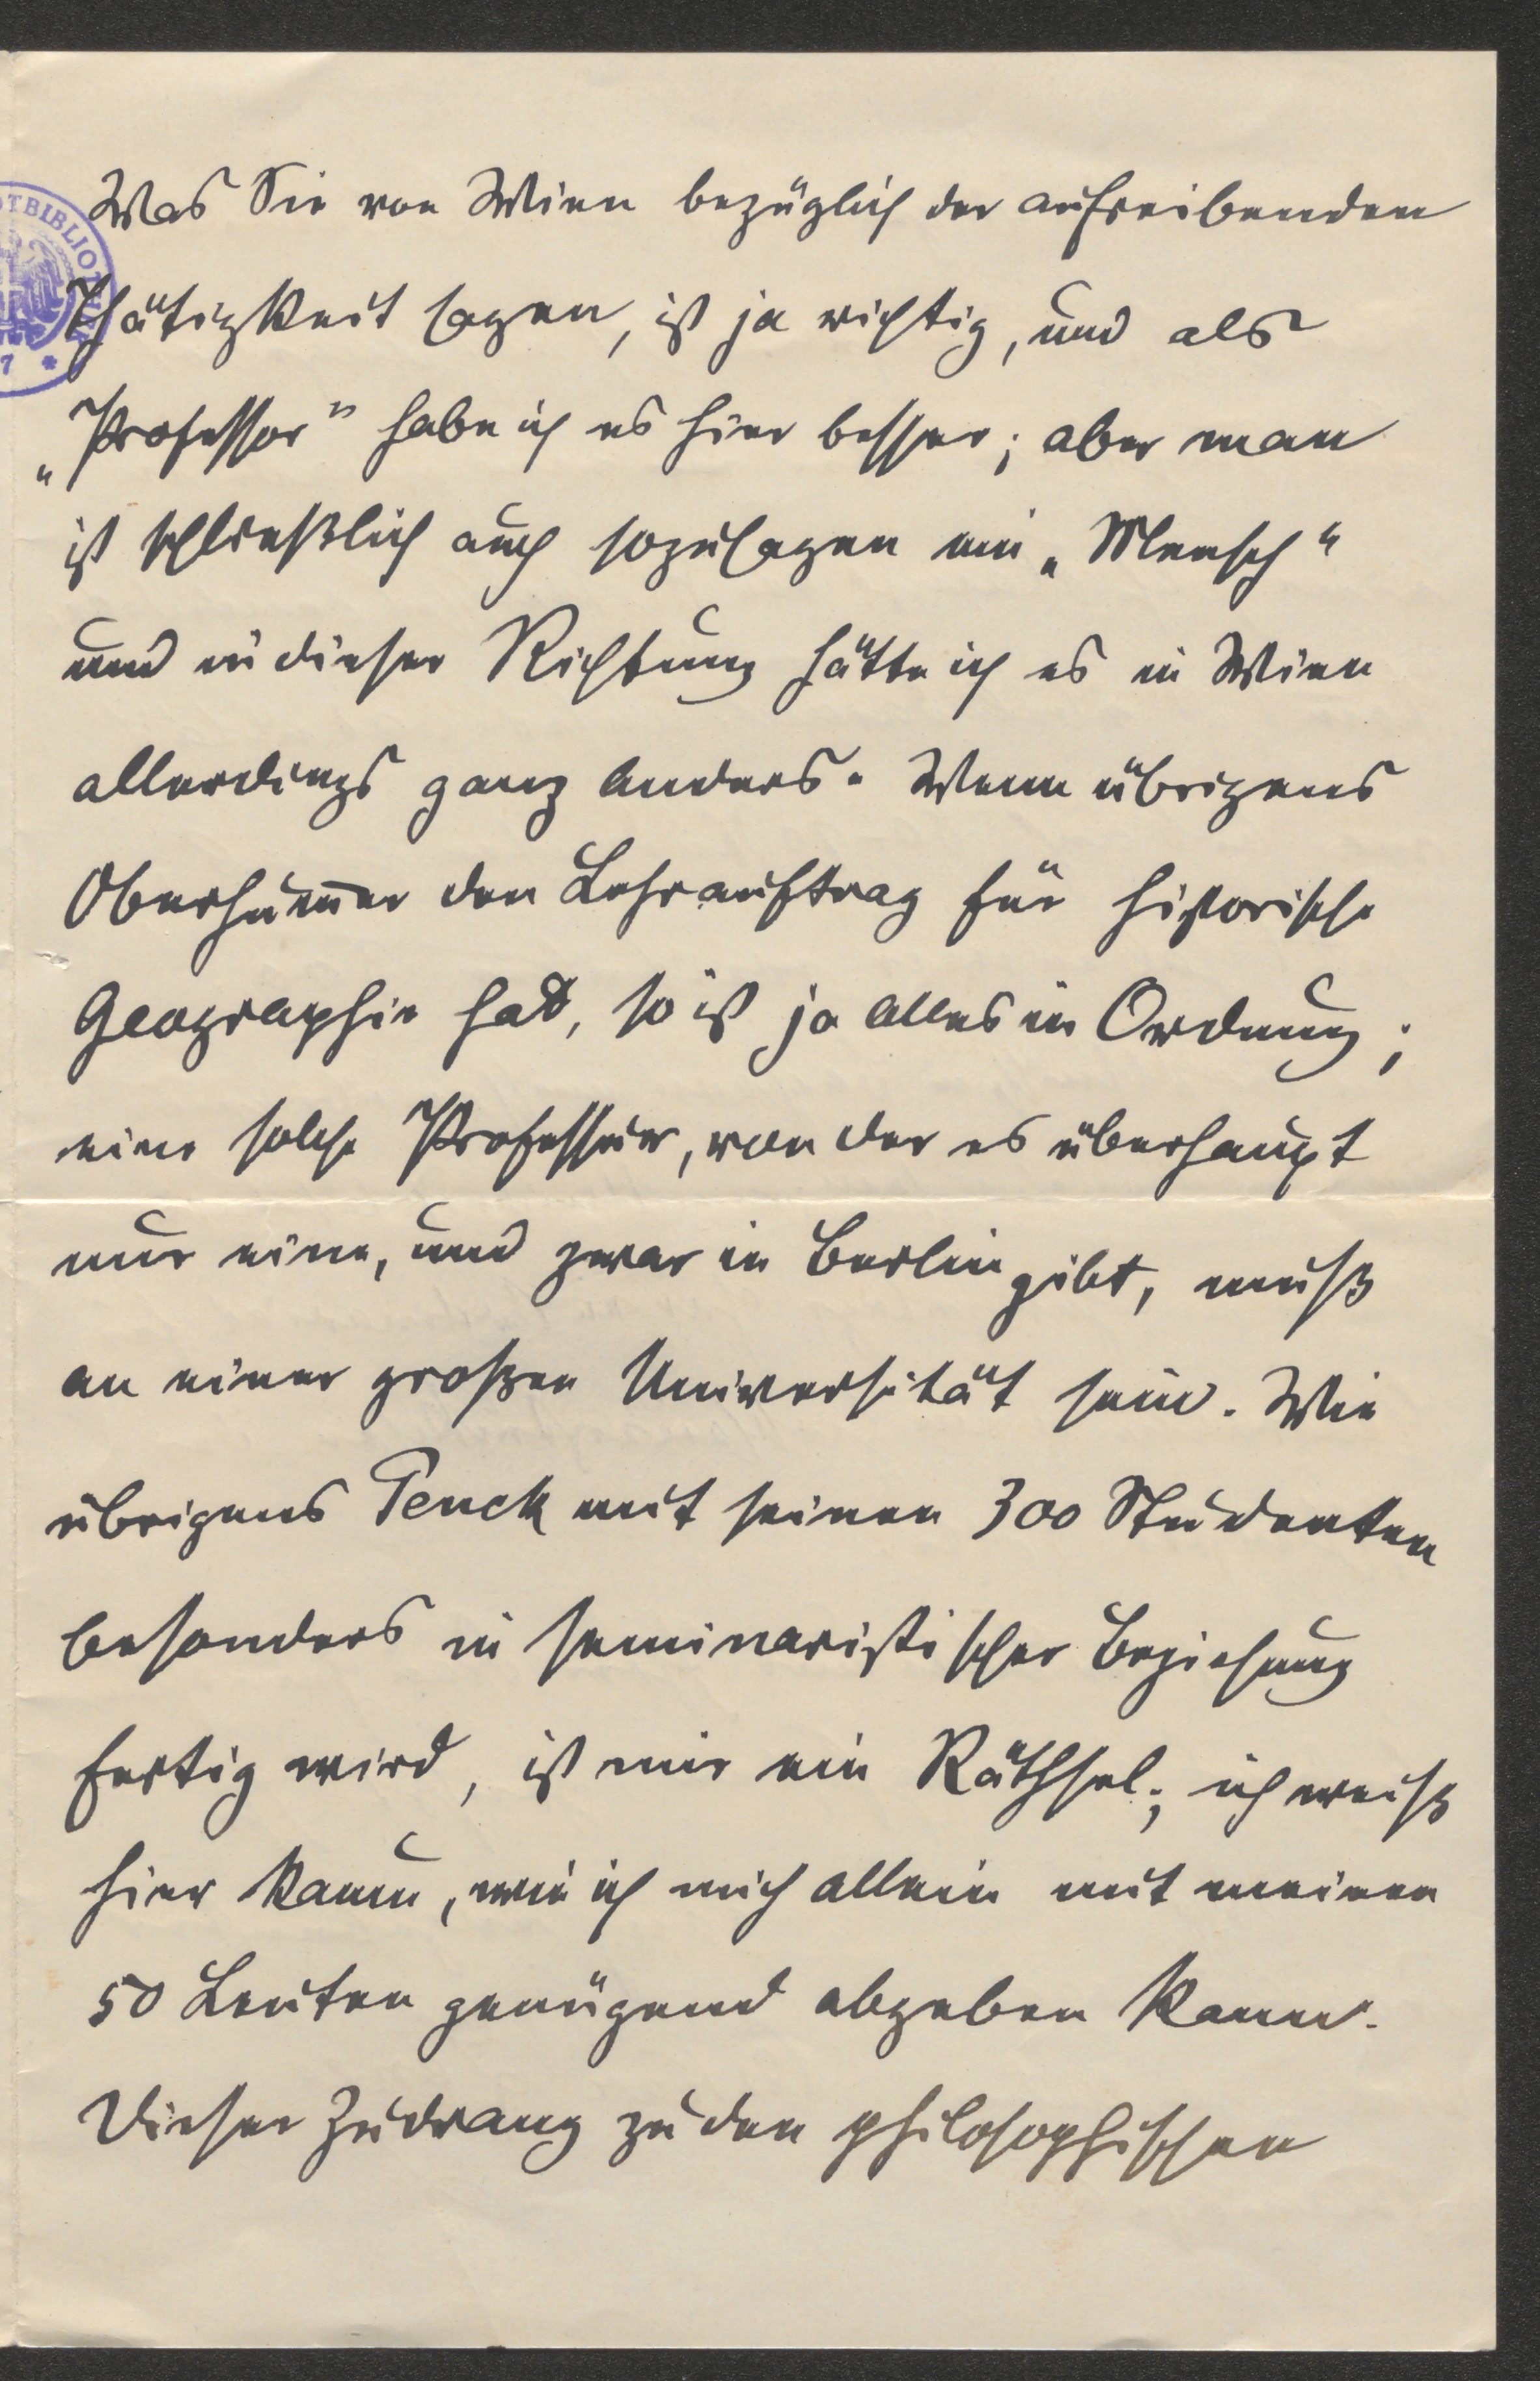 Was Sie von Wien bezüglich der aufreibenden
Thätigkeit sagen, ist ja richtig, und als
„Professor“ habe ich es hier besser; aber man
ist schließlich auch sozusagen ein „Mensch“
und in dieser Richtung hätte ich es in Wien
allerdings ganz anders. Wenn übrigens
Oberhum̅er den Lehrauftrag für historische
Geographie hat, so ist ja alles in Ordnung;
eine solche Professur, von der es überhaupt
nur eine, und zwar in Berlin gibt, muß
an einer großen Universität sein. Wie
übrigens Penck mit seinen 300 Studenten
besonders in seminaristischer Beziehung
fertig wird, ist mir ein Räthsel; ich weiß
hier kaum, wie ich mich allein mit meinen
50 Leuten genügend abgeben kann.
Dieser Zudrang zu den philosophischen